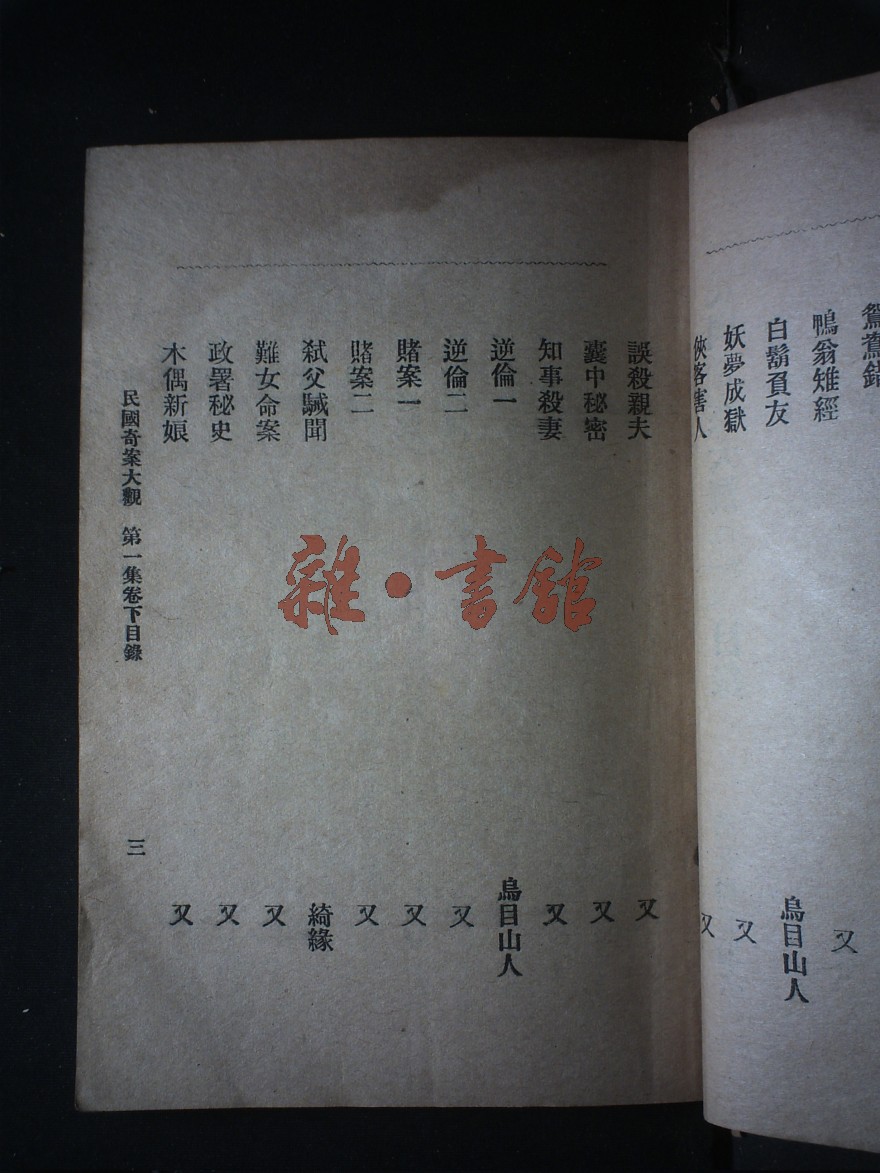 鴛鴦錯
鴨翁雉經 又
白鬍負友 烏目山人
妖夢成獄 又
俠客害人 又
誤殺親夫 又
囊中秘密 又
知事殺妻 又
逆倫一 烏目山人
逆倫二 又
賭案一 又
賭案二 又
弑父駴聞 綺緣
難女命案 又
政署秘史 又
木偶新娘 又
民國奇案大觀 第一集卷下目錄 三
雜·書館